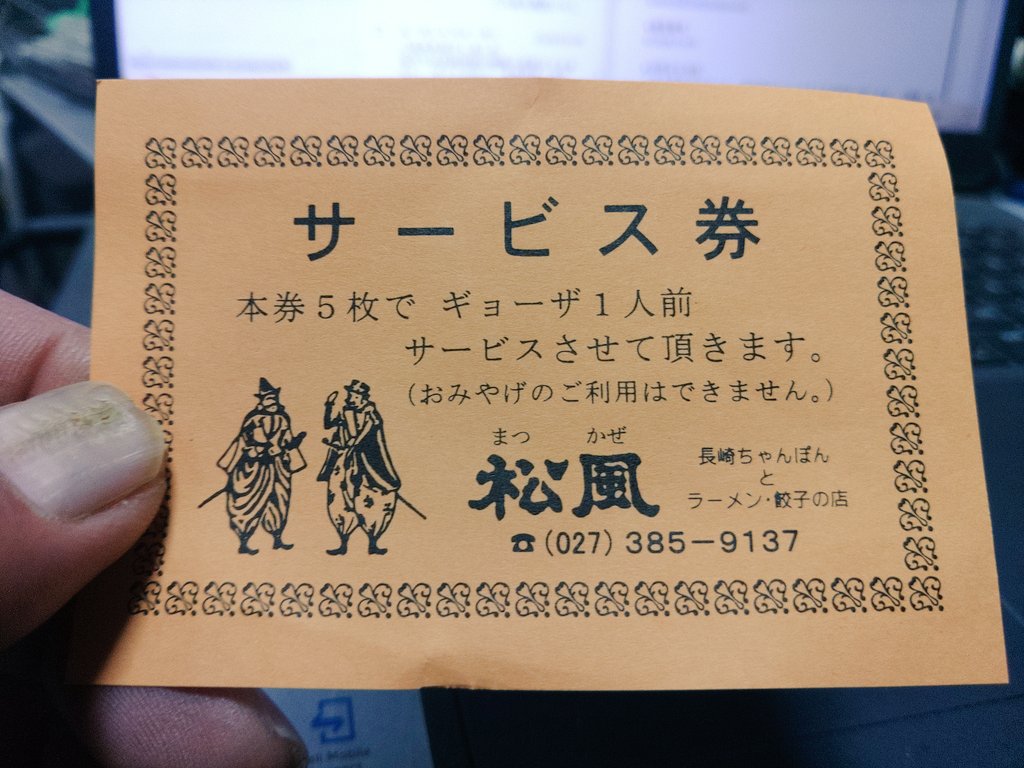 サービス券
本券5枚で ギョーザ1人前
サービスさせて頂きます。
(おみやげのご利用はできません。)
まつ かぜ
松風
長崎ちゃんぽん
と
ラーメン・餃子の店
☎(027)385-9137